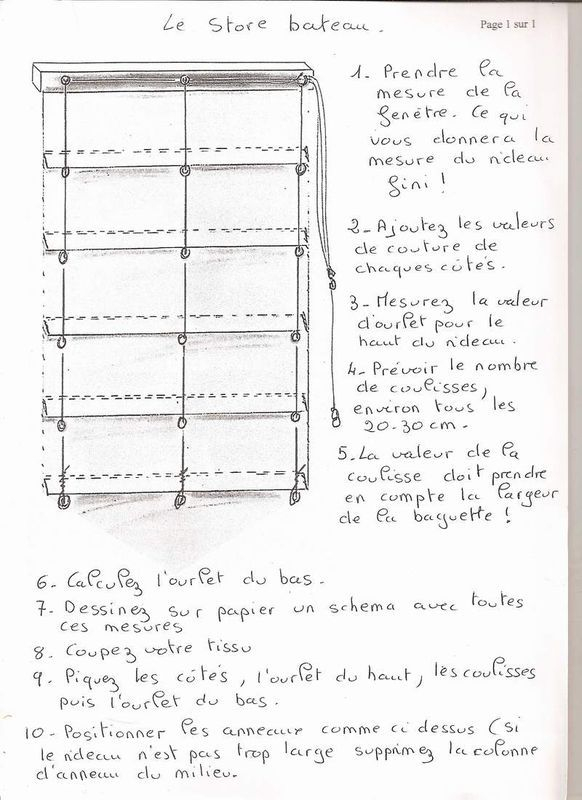 Le Store bateau.
Page 1 sur 1
1- Prendre la
mesure de la
fenêtre. Ce qui
vous donnera la
mesure du rideau
fini !
2- Ajoutez les valeurs
de couture de
chaques côtés.
3- Mesurez la valeur
d'ourlet pour le
haut du rideau.
4- Prévoir le nombre
de coulisses,
environ tous les
20-30 cm.
5. La valeur de la
coulisse doit prendre
en compte la largeur
de la baguette !
6- Calculez l'ourlet du bas.
7- Dessinez sur papier un schema avec toutes
ces mesures
8- Coupez votre tissu
9- Piquez les côtés, l'ourlet du haut, les coulisses
puis l'ourlet du bas.
10- Positionner les anneaux comme ci dessus (si
le rideau n'est pas trop large supprimez la colonne
d'anneau du milieu.